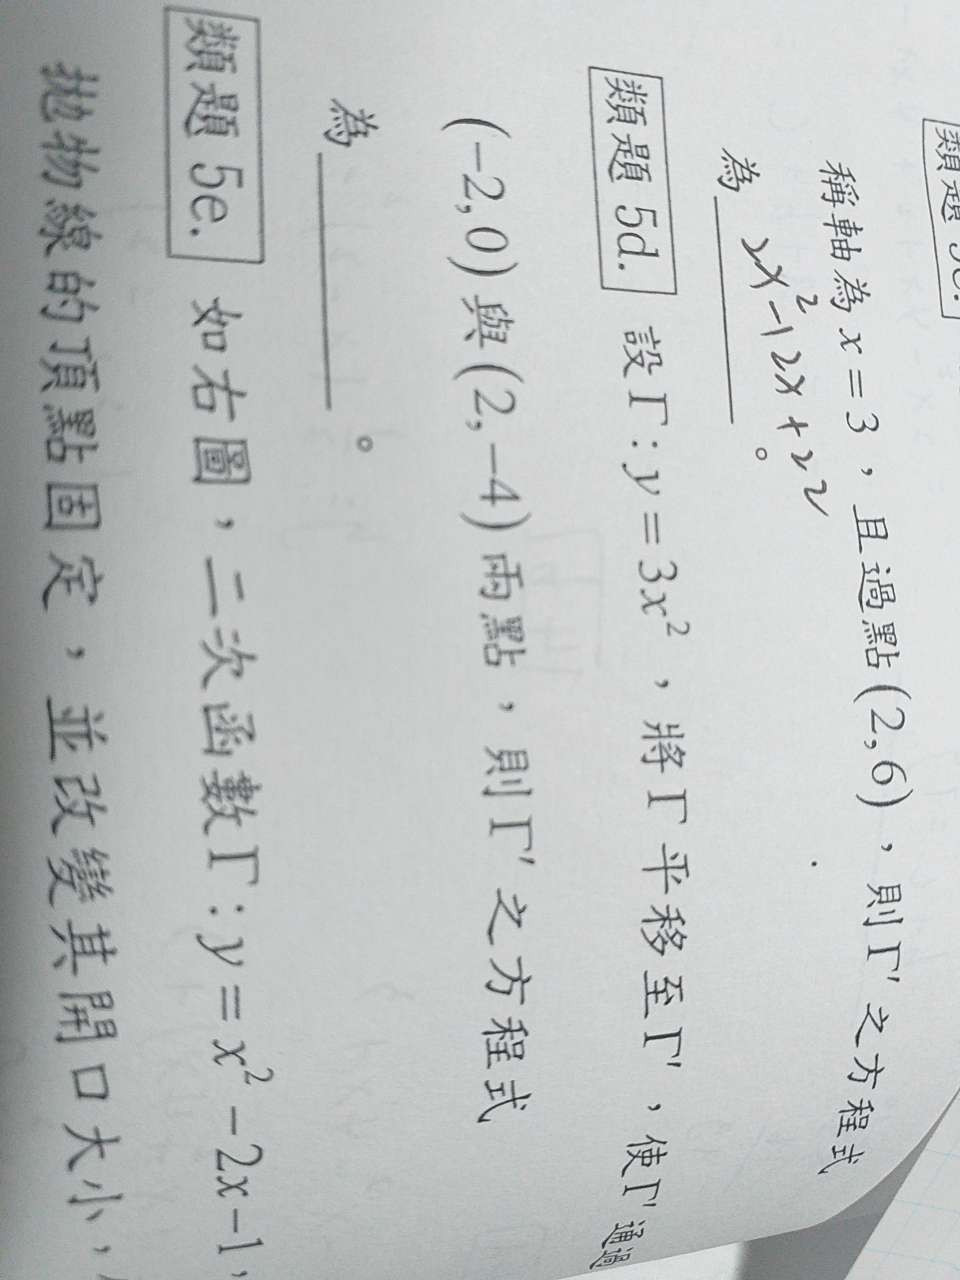 類題 5c.
稱軸為 x = 3，且過點(2,6)，則 Γ' 之方程式
為 2x²-12x+22 。
類題 5d. 設 Γ : y = 3x²，將 Γ 平移至 Γ'，使 Γ' 通過
(-2,0) 與 (2,-4) 兩點，則 Γ' 之方程式
為 。
類題 5e. 如右圖，二次函數 Γ : y = x² - 2x - 1，
拋物線的頂點固定，並改變其開口大小，